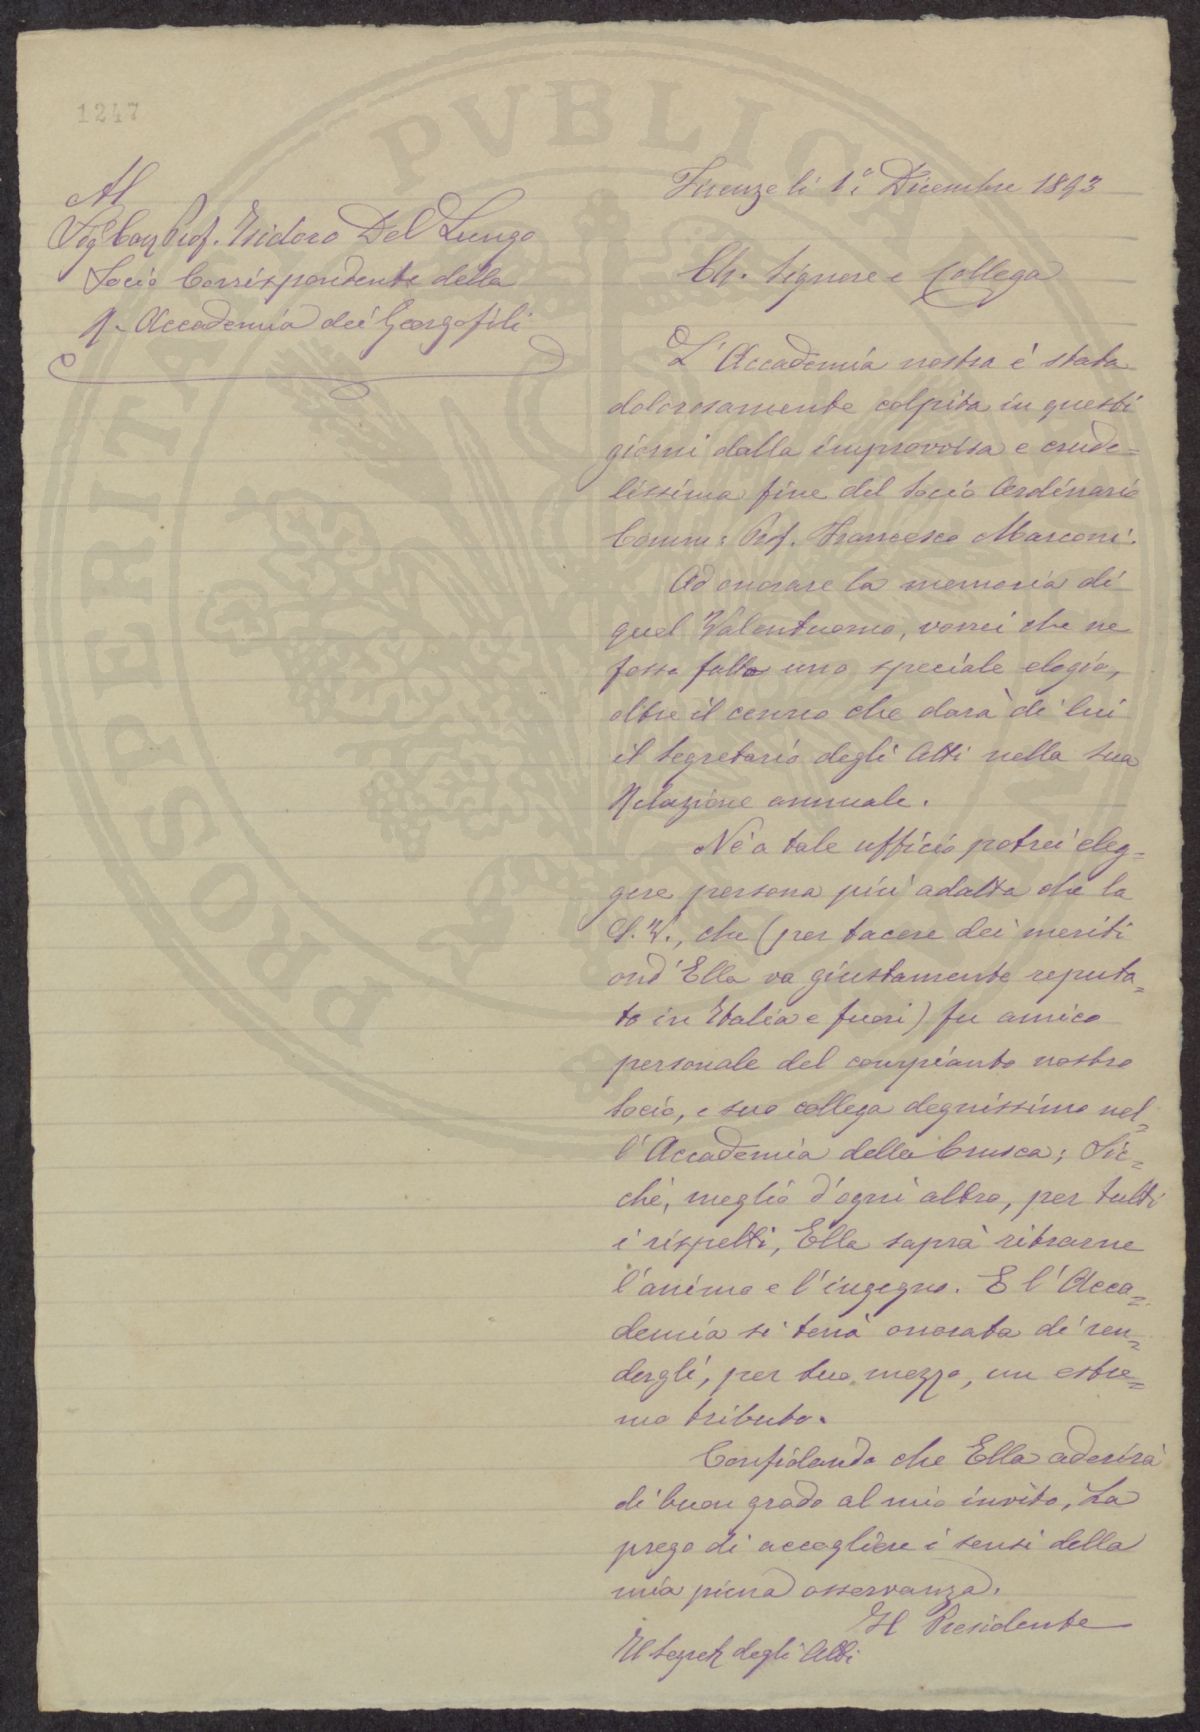 1247
Al
Sig.r Cav. Prof. Isidoro Del Lungo
Socio Corrispondente della
R. Accademia dei Georgofili
Firenze li 1° Dicembre 1893
Ch. Signore e Collega
L'Accademia nostra è stata
dolorosamente colpita in questi
giorni dalla improvvisa e crude=
lissima fine del Socio Ordinario
Comm: Prof. Francesco Marconi.
Ad onorare la memoria di
quel Valentuomo, vorrei che ne
fosse fatto uno speciale elogio,
oltre il cenno che darà di lui
il Segretario degli Atti nella sua
Relazione annuale.
Nè a tale ufficio potrei eleg=
gere persona più adatta che la
S. V., che (per tacere dei meriti
ond'Ella va giustamente reputa=
to in Italia e fuori) fu amico
personale del compianto nostro
Socio, e suo collega degnissimo nel=
l'Accademia della Crusca; Sic=
chè, meglio d'ogni altro, per tutti
i rispetti, Ella saprà ritrarne
l'animo e l'ingegno. E l'Acca=
demia si terrà onorata di ren=
dergli, per suo mezzo, un estre=
mo tributo.
Confidando che Ella aderirà
di buon grado al mio invito, La
prego di accogliere i sensi della
mia piena osservanza.
Il Presidente
Il Segret. degli Atti
PROSPERITATI PVBLICAE